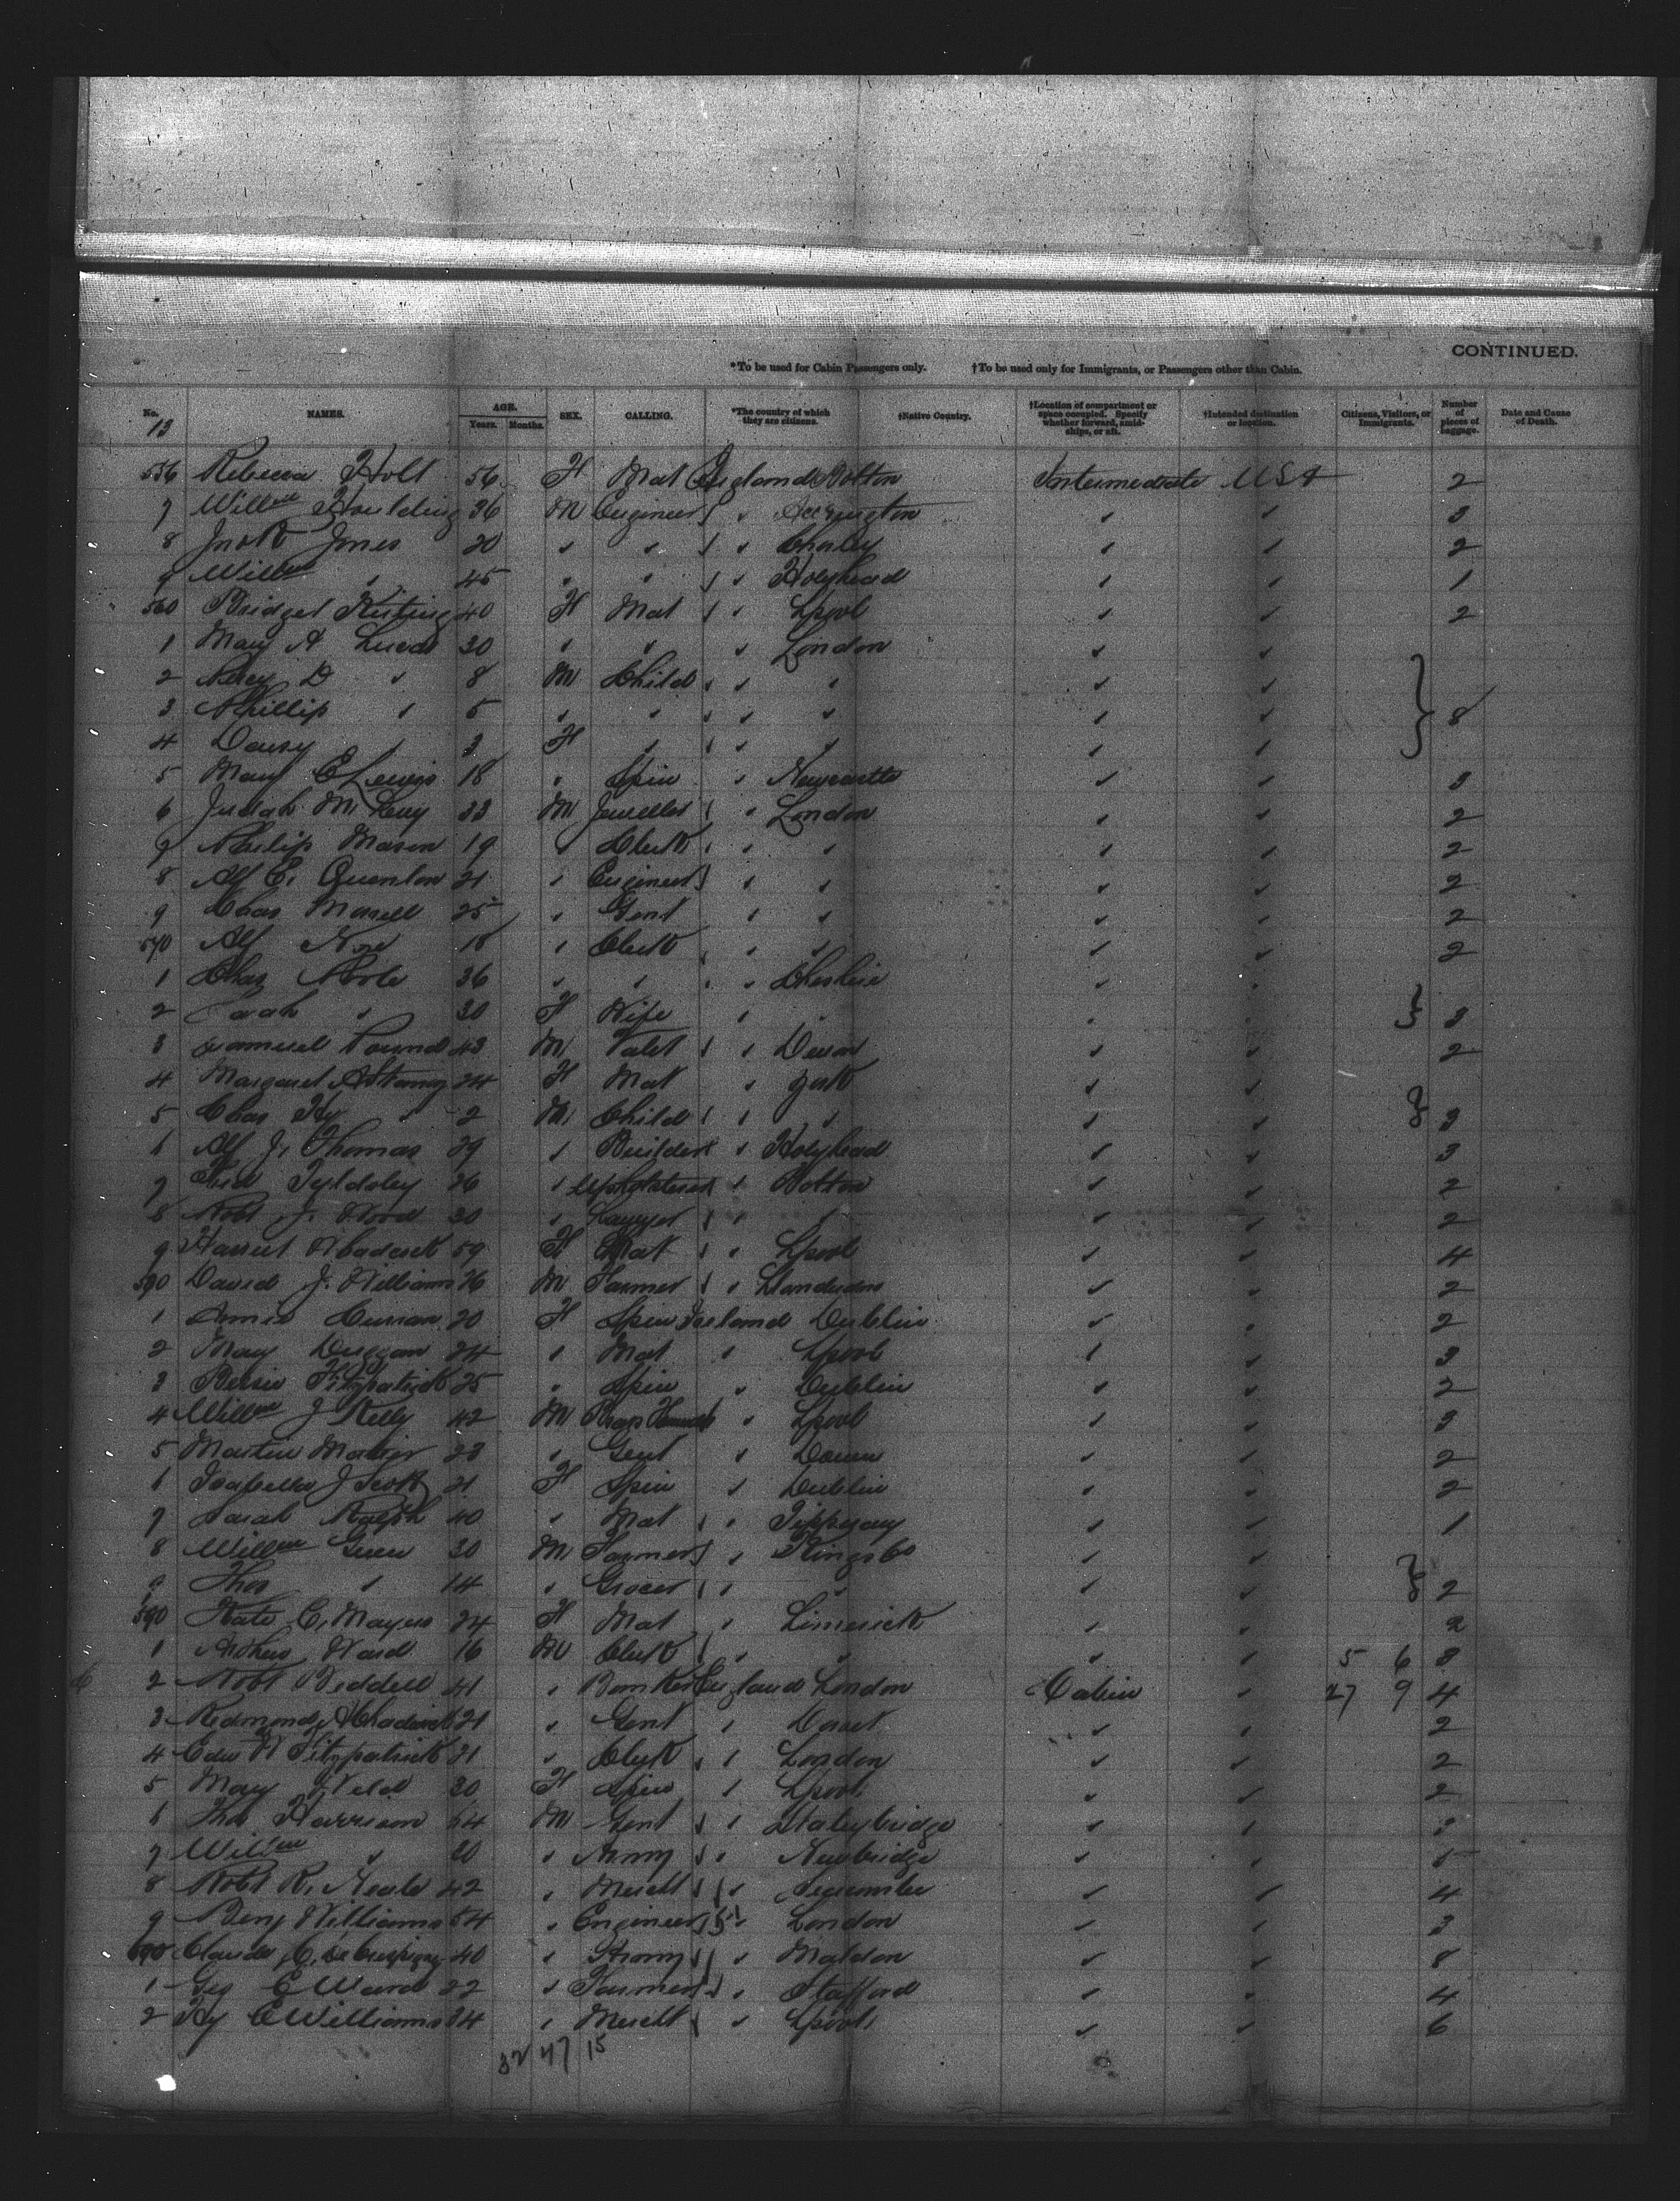 CONTINUED.
*To be used for Cabin Passengers only. †To be used only for Immigrants, or Passengers other than Cabin.
No. NAMES. AGE. Years. Months. SEX. CALLING. *The country of which they are citizens. †Native Country. †Location of compartment or space occupied. Specify whether forward, amidships, or aft. †Intended destination or location. Citizens, Visitors, or Immigrants. Number of pieces of baggage. Date and Cause of Death.
13
556 Rebecca Holt 56 F Mat England Bolton Intermediate USA 2
7 Willm Houlding 36 M Engineer Accrington 3
8 Jno R Jones 20 Chorley 2
9 Willm 45 Holyhead 1
560 Bridget 40 F Mat Lpool 2
1 Mary A Lucas 30 London
2 Percy D 8 M Child
3 Phillip 5 8
4 Daisy 3 F
5 Mary E Lewis 18 Spin Newcastle 3
6 Judah M Levy 33 M Jeweller London 2
7 Philip Mason 19 Clerk 2
8 Alf E. Quenton 21 Engineer 2
9 Chas 25 Gent 2
570 Alf 18 Clerk 2
1 Chas Poole 36 Cheshire
2 Sarah 30 F Wife 3
3 Pound 43 M Valet Devon 2
4 Margaret 24 F Mat York
5 Chas Hy 2 M Child 3
6 Alf J. Thomas 29 Builder Holyhead 3
7 Fred Tyldsley 26 Upholsterer Bolton 2
8 Robt J. Wood 30 Lawyer 2
9 Harriet Chadwick 59 F Mat Lpool 4
David J. Williams 26 M Farmer Llandudno 2
1 Annie Curran 20 F Spin Ireland Dublin 2
2 Mary Duggan 24 Mat Lpool 3
3 Bessie Fitzpatrick 25 Spin Dublin 2
4 Willm J Kelly 42 M Lpool 3
5 Martin 23 Gent Down 2
6 Isabella J Scott 21 F Spin Dublin 2
7 Sarah Ralph 40 Mat Tipperary 1
8 Willm Green 30 M Farmer Kings Co
9 Thos 14 Grocer 2
590 Kate C. Mayers 24 F Mat Limerick 2
1 Arthur Ward 16 M Clerk 5 6 3
2 Robt Beddell 41 Banker England London Cabin 27 9 4
3 Redmond Chadwick 21 Gent Dorset 2
4 Edw W Fitzpatrick 21 Clerk London 2
5 Mary Weld 20 F Spin Lpool 2
6 Thos Harrison 54 M Gent Staleybridge 3
7 Willm 20 Army Newbridge 5
8 Robt R. Neale 42 Mercht 4
9 Benj Williams 54 Engineer London 3
600 Claude C. de Crespigny 40 Army Maldon 8
1 Geo E Ward 22 Farmer Stafford 4
2 Hy E Williams 24 Mercht Lpool 6
32 47 15